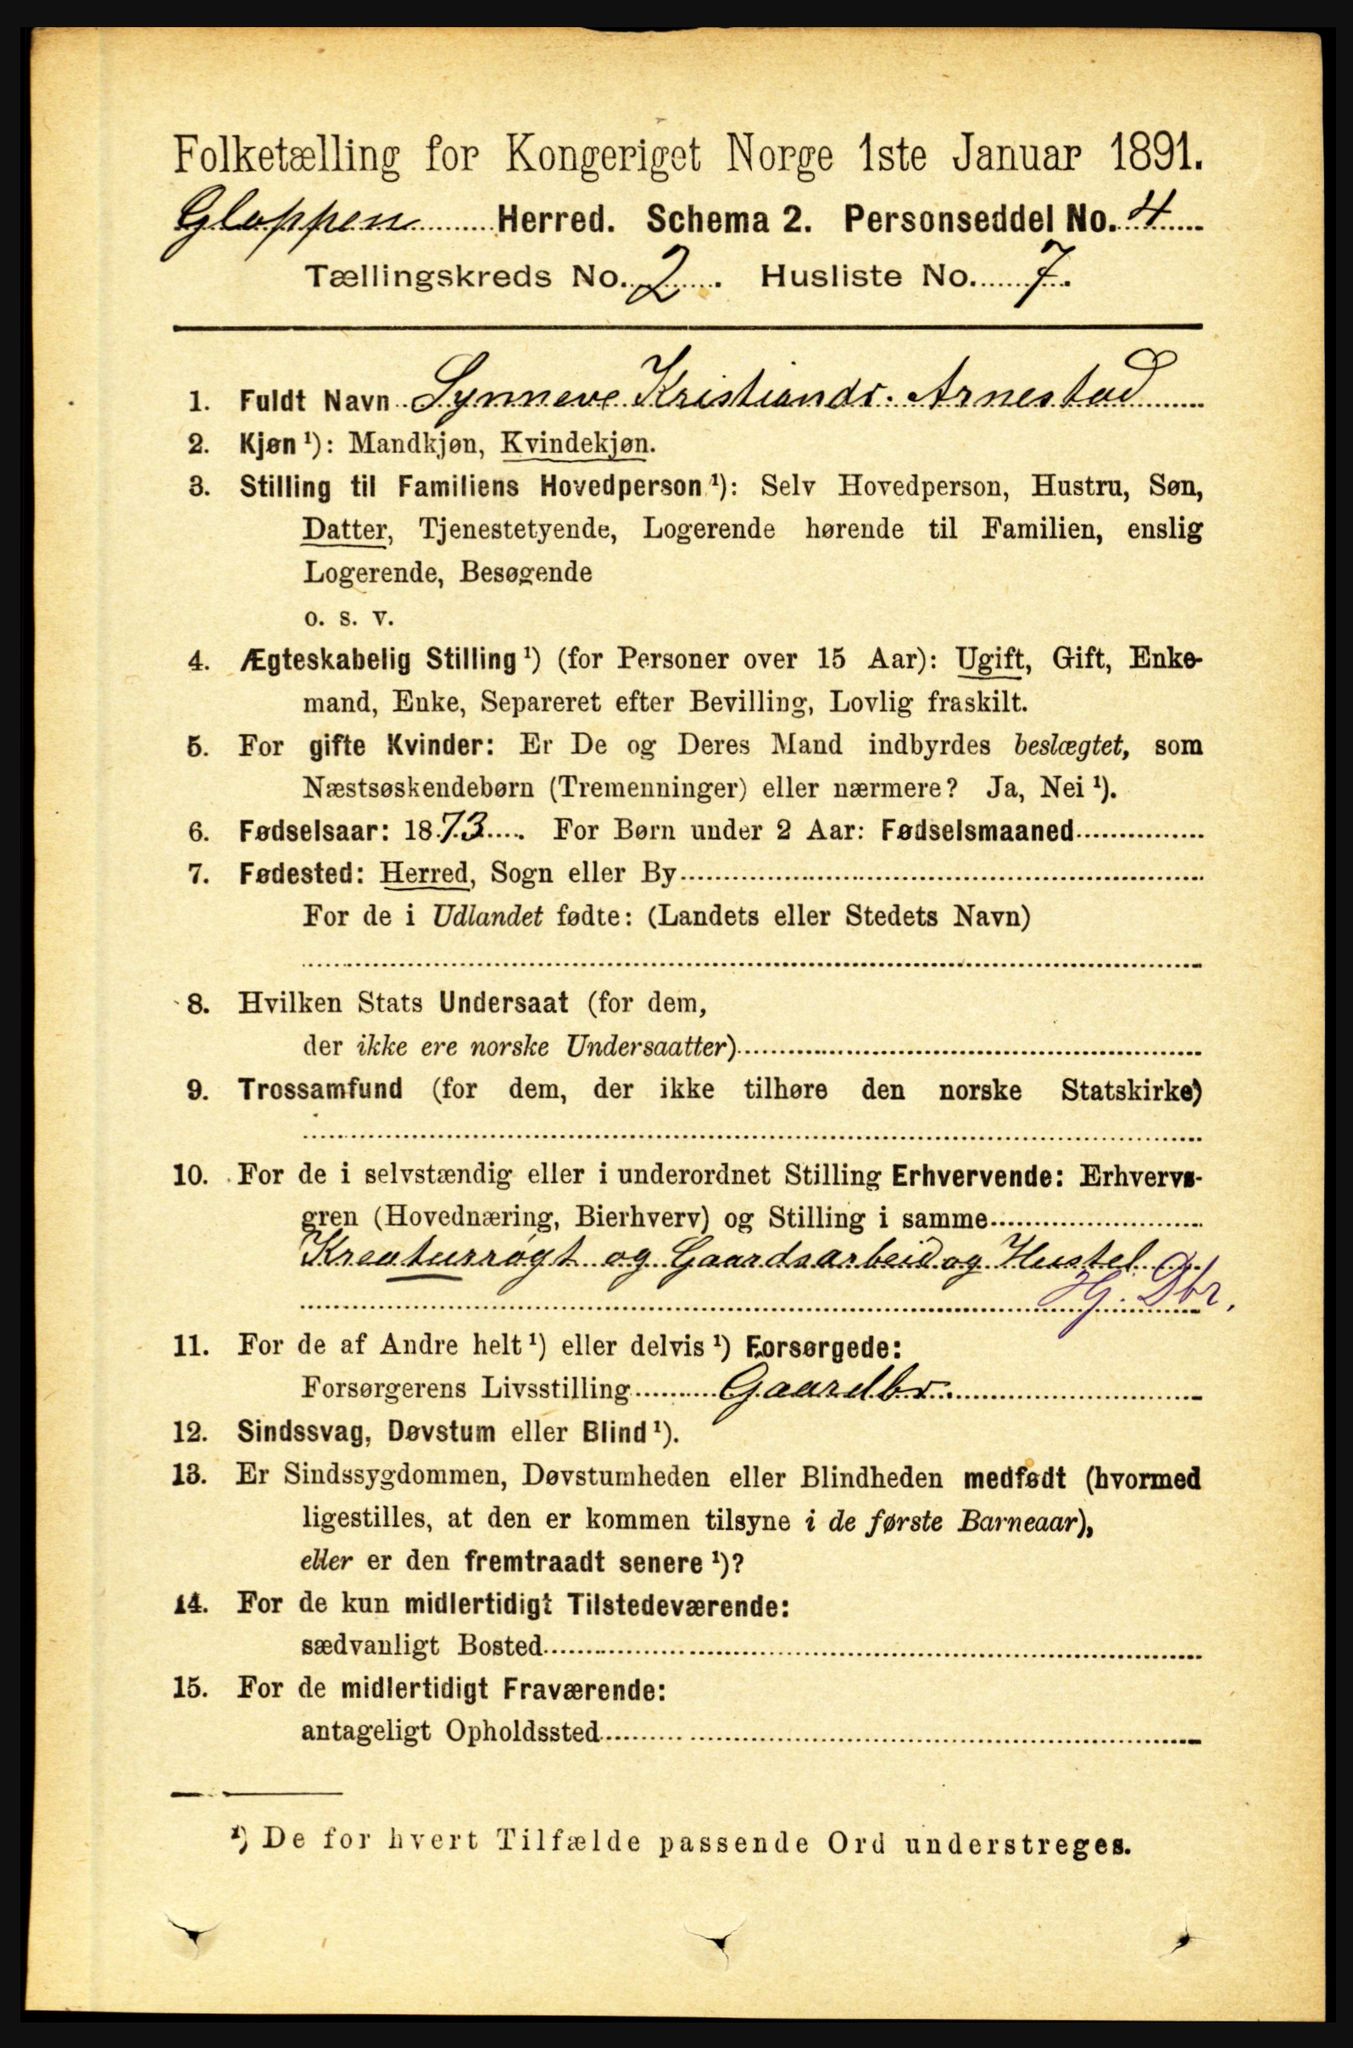 Folketælling for Kongeriget Norge 1ste Januar 1891.
Gloppen Herred. Schema 2. Personseddel No. 4
Tællingskreds No. 2. Husliste No. 7.
1. Fuldt Navn Synneve Kristiansdr. Arnestad
2. Kjøn ¹): Mandkjøn, Kvindekjøn.
3. Stilling til Familiens Hovedperson ¹): Selv Hovedperson, Hustru, Søn,
Datter, Tjenestetyende, Logerende hørende til Familien, enslig
Logerende, Besøgende
o. s. v.
4. Ægteskabelig Stilling ¹) (for Personer over 15 Aar): Ugift, Gift, Enke-
mand, Enke, Separeret efter Bevilling, Lovlig fraskilt.
5. For gifte Kvinder: Er De og Deres Mand indbyrdes beslægtet, som
Næstsøskendebørn (Tremenninger) eller nærmere? Ja, Nei ¹).
6. Fødselsaar: 1873. For Børn under 2 Aar: Fødselsmaaned
7. Fødested: Herred, Sogn eller By
For de i Udlandet fødte: (Landets eller Stedets Navn)
8. Hvilken Stats Undersaat (for dem,
der ikke ere norske Undersaatter)
9. Trossamfund (for dem, der ikke tilhøre den norske Statskirke)
10. For de i selvstændig eller i underordnet Stilling Erhvervende: Erhvervs-
gren (Hovednæring, Bierhverv) og Stilling i samme
Kreaturrøgt og Gaardsarbeid og Hustel
Hj. Dtr.
11. For de af Andre helt ¹) eller delvis ¹) Forsørgede:
Forsørgerens Livsstilling Gaardbr.
12. Sindssvag, Døvstum eller Blind ¹).
13. Er Sindssygdommen, Døvstumheden eller Blindheden medfødt (hvormed
ligestilles, at den er kommen tilsyne i de første Barneaar),
eller er den fremtraadt senere ¹)?
14. For de kun midlertidigt Tilstedeværende:
sædvanligt Bosted
15. For de midlertidigt Fraværende:
antageligt Opholdssted
¹) De for hvert Tilfælde passende Ord understreges.